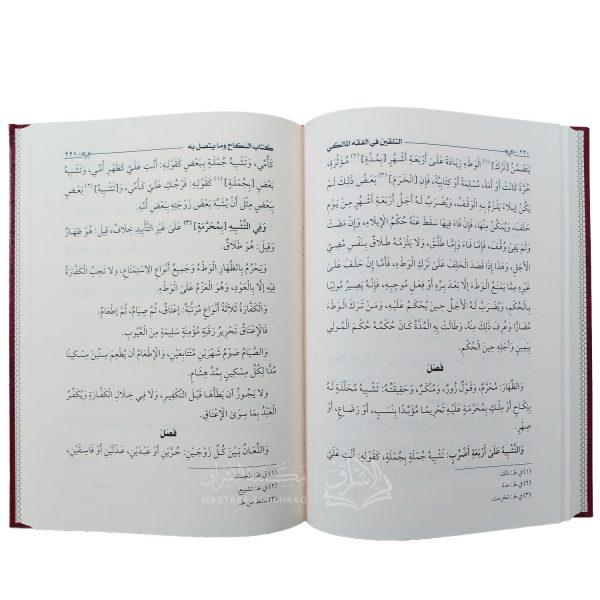 ٢٢٠ التلقين في الفقه المالكي
يَتَضَمَّنُ [تَرْكَ] (١) الْوَطْءِ زِيَادَةً عَلَىٰ أَرْبَعَةِ أَشْهُرٍ [بِمُدَّةٍ] (٢) مُؤَثِّرَةٍ،
حُرَّةً كَانَتْ أَوْ أَمَةً، مُسْلِمَةً أَوْ كِتَابِيَّةً، فَإِنِ [انْخَرَمَ] (٣) بَعْضُ ذَلِكَ لَمْ
يَكُنْ إِيلَاءً يَلْزَمُ بِهِ الْوَقْفُ، وَيُضْرَبُ لَهُ أَجَلُ أَرْبَعَةِ أَشْهُرٍ مِنْ يَوْمِ
حَلَفَ، وَيُمَكَّنُ مِنْهَا، فَإِنْ فَاءَ فِيهَا سَقَطَ عَنْهُ حُكْمُ الْإِيلَاءِ، وَإِنْ مَضَتْ
وَلَمْ يَفِئْ وُقِفَ، فَإِمَّا فَاءَ وَإِمَّا طَلَّقَ، وَلَا يَلْزَمُهُ طَلَاقٌ بِنَفْسِ مُضِيِّ
الْأَجَلِ، وَهَذَا إِذَا قَصَدَ الْحَلِفَ عَلَىٰ تَرْكِ الْوَطْءِ، فَأَمَّا إِنْ حَلَفَ عَلَىٰ
غَيْرِهِ مِمَّا يَمْنَعُ الْوَطْءَ إِلَّا بَعْدَ بِرِّهِ أَوْ فِعْلِ مُوجِبِهِ، فَإِنَّهُ يَصِيرُ مُولِيًا
بِالْحُكْمِ، وَيُضْرَبُ لَهُ الْأَجَلُ حِينَ يُحْكَمُ عَلَيْهِ، وَمَنْ تَرَكَ الْوَطْءَ
مُضَارًّا وَعُرِفَ ذَلِكَ مِنْهُ، وَطَالَتْ بِهِ الْمُدَّةُ كَانَ حُكْمُهُ حُكْمَ الْمُولِي
بِيَمِينٍ وَأَجَلُهُ حِينَ الْحُكْمِ.
فصل
وَالظِّهَارُ: مُحَرَّمٌ، وَقَوْلُ زُورٍ، وَمُنْكَرٌ، وَحَقِيقَتُهُ: تَشْبِيهُ مُحَلَّلَةٍ لَهُ
بِنِكَاحٍ أَوْ مِلْكٍ بِمُحَرَّمَةٍ عَلَيْهِ تَحْرِيمًا مُؤَبَّدًا بِنَسَبٍ، أَوْ رَضَاعٍ، أَوْ
صِهْرٍ.
وَالتَّشْبِيهُ عَلَىٰ أَرْبَعَةِ أَضْرُبٍ: تَشْبِيهُ جُمْلَةٍ بِجُمْلَةٍ، كَقَوْلِهِ: أَنْتِ عَلَيَّ
(١) في ط: ذلك.
(٢) في ط: مدة.
(٣) في ط: انخرمت.
كتاب النكاح وما يتصل به ٢٢١
كَأُمِّي، وَتَشْبِيهُ جُمْلَةٍ بِبَعْضٍ كَقَوْلِهِ: أَنْتِ عَلَيَّ كَظَهْرِ أُمِّي، وَتَشْبِيهُ
بَعْضٍ [بِجُمْلَةٍ] (١) كَقَوْلِهِ: فَرْجُكِ عَلَيَّ كَأُمِّي، وَ[تَشْبِيهُ] (٢) بَعْضٍ
بِبَعْضٍ مِثْلَ أَنْ يُشَبِّهَ بَعْضَ زَوْجَتِهِ بِبَعْضِ أُمِّهِ.
وَفِي [التَّشْبِيهِ] [بِمُحَرَّمَةٍ] (٣) عَلَىٰ غَيْرِ التَّأْبِيدِ خِلَافٌ، قِيلَ: هُوَ ظِهَارٌ
وَقِيلَ: هُوَ طَلَاقٌ.
وَيَحْرُمُ بِالظِّهَارِ الْوَطْءُ وَجَمِيعُ أَنْوَاعِ الِاسْتِمْتَاعِ، وَلَا تَجِبُ الْكَفَّارَةُ
فِيهِ إِلَّا بِالْعَوْدِ، وَهُوَ الْعَزْمُ عَلَىٰ الْوَطْءِ.
وَالْكَفَّارَةُ ثَلَاثَةُ أَنْوَاعٍ مُرَتَّبَةٌ: إِعْتَاقٌ، ثُمَّ صِيَامٌ، ثُمَّ إِطْعَامٌ.
فَالْإِعْتَاقُ تَحْرِيرُ رَقَبَةٍ مُؤْمِنَةٍ سَلِيمَةٍ مِنَ الْعُيُوبِ.
وَالصِّيَامُ صَوْمُ شَهْرَيْنِ مُتَتَابِعَيْنِ، وَالْإِطْعَامُ أَنْ يُطْعِمَ سِتِّينَ مِسْكِينًا
مُدًّا لِكُلِّ مِسْكِينٍ بِمُدِّ هِشَامٍ.
وَلَا يَجُوزُ أَنْ يَطَأَهَا قَبْلَ التَّكْفِيرِ، وَلَا فِي خِلَالِ الْكَفَّارَةِ وَيُكَفِّرُ
الْعَبْدُ بِمَا سِوَىٰ الْإِعْتَاقِ.
فصل
وَاللِّعَانُ بَيْنَ كُلِّ زَوْجَيْنِ: حُرَّيْنِ أَوْ عَبْدَيْنِ، عَدْلَيْنِ أَوْ فَاسِقَيْنِ،
(١) في ط: الجملة.
(٢) في ط: تشبيع.
(٣) سقط من ط.
مكتبة الإشراق
MAKTABAT ISHRAQ